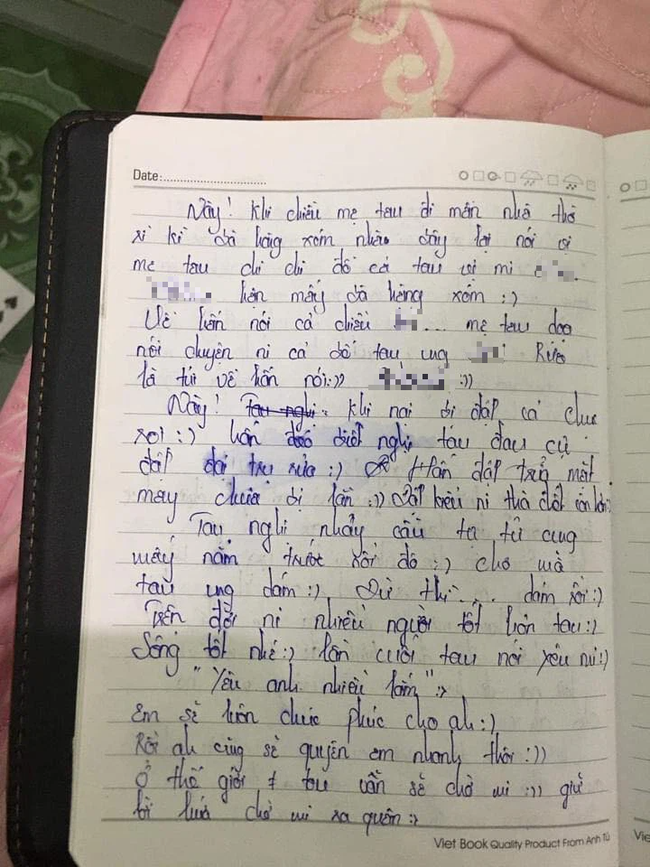 Date:
Này! Khi chiều mẹ tau đi mên nhà thờ
xì kì bà hàng xóm nhào đây lại nói vì
mẹ tau chi chi đó cả tau vì mi
hên mấy bà hàng xóm :)
Về hắn nói cả chiều ... mẹ tau dọa
nói chuyện ni cả đó tau ưng Rứa
là tui về hắn nói:)) :))
Này! Tau nghi. Khi nại bị đập cả chưa
xoi:) hắn đéo biết nghi tau đau cứ
đập dai tru rứa:) Hắn đập trỉ mặt
may chưa bị lần:)) Đập kiểu ni thà đốt
Tau nghi nhảy cầu tạ tử cung
mấy năm trước rồi đó:) cho mà
tau ưng dám:). Dừ thì... dám rồi:)
Trên đời ni nhiều người tốt hơn tau:)
Sống tốt nhé:) lần cuối tau nói yêu mi:)
"Yêu anh nhiều lắm":)
Em sẽ luôn chúc phúc cho ah:)
Rồi ah cũng sẽ quyên em nhanh thôi:))
Ở thế giới # tau vẫn sẽ chờ mi:)) giữ
lời hứa chờ mi xa quên:)
Viet Book Quality Product From Anh Tú